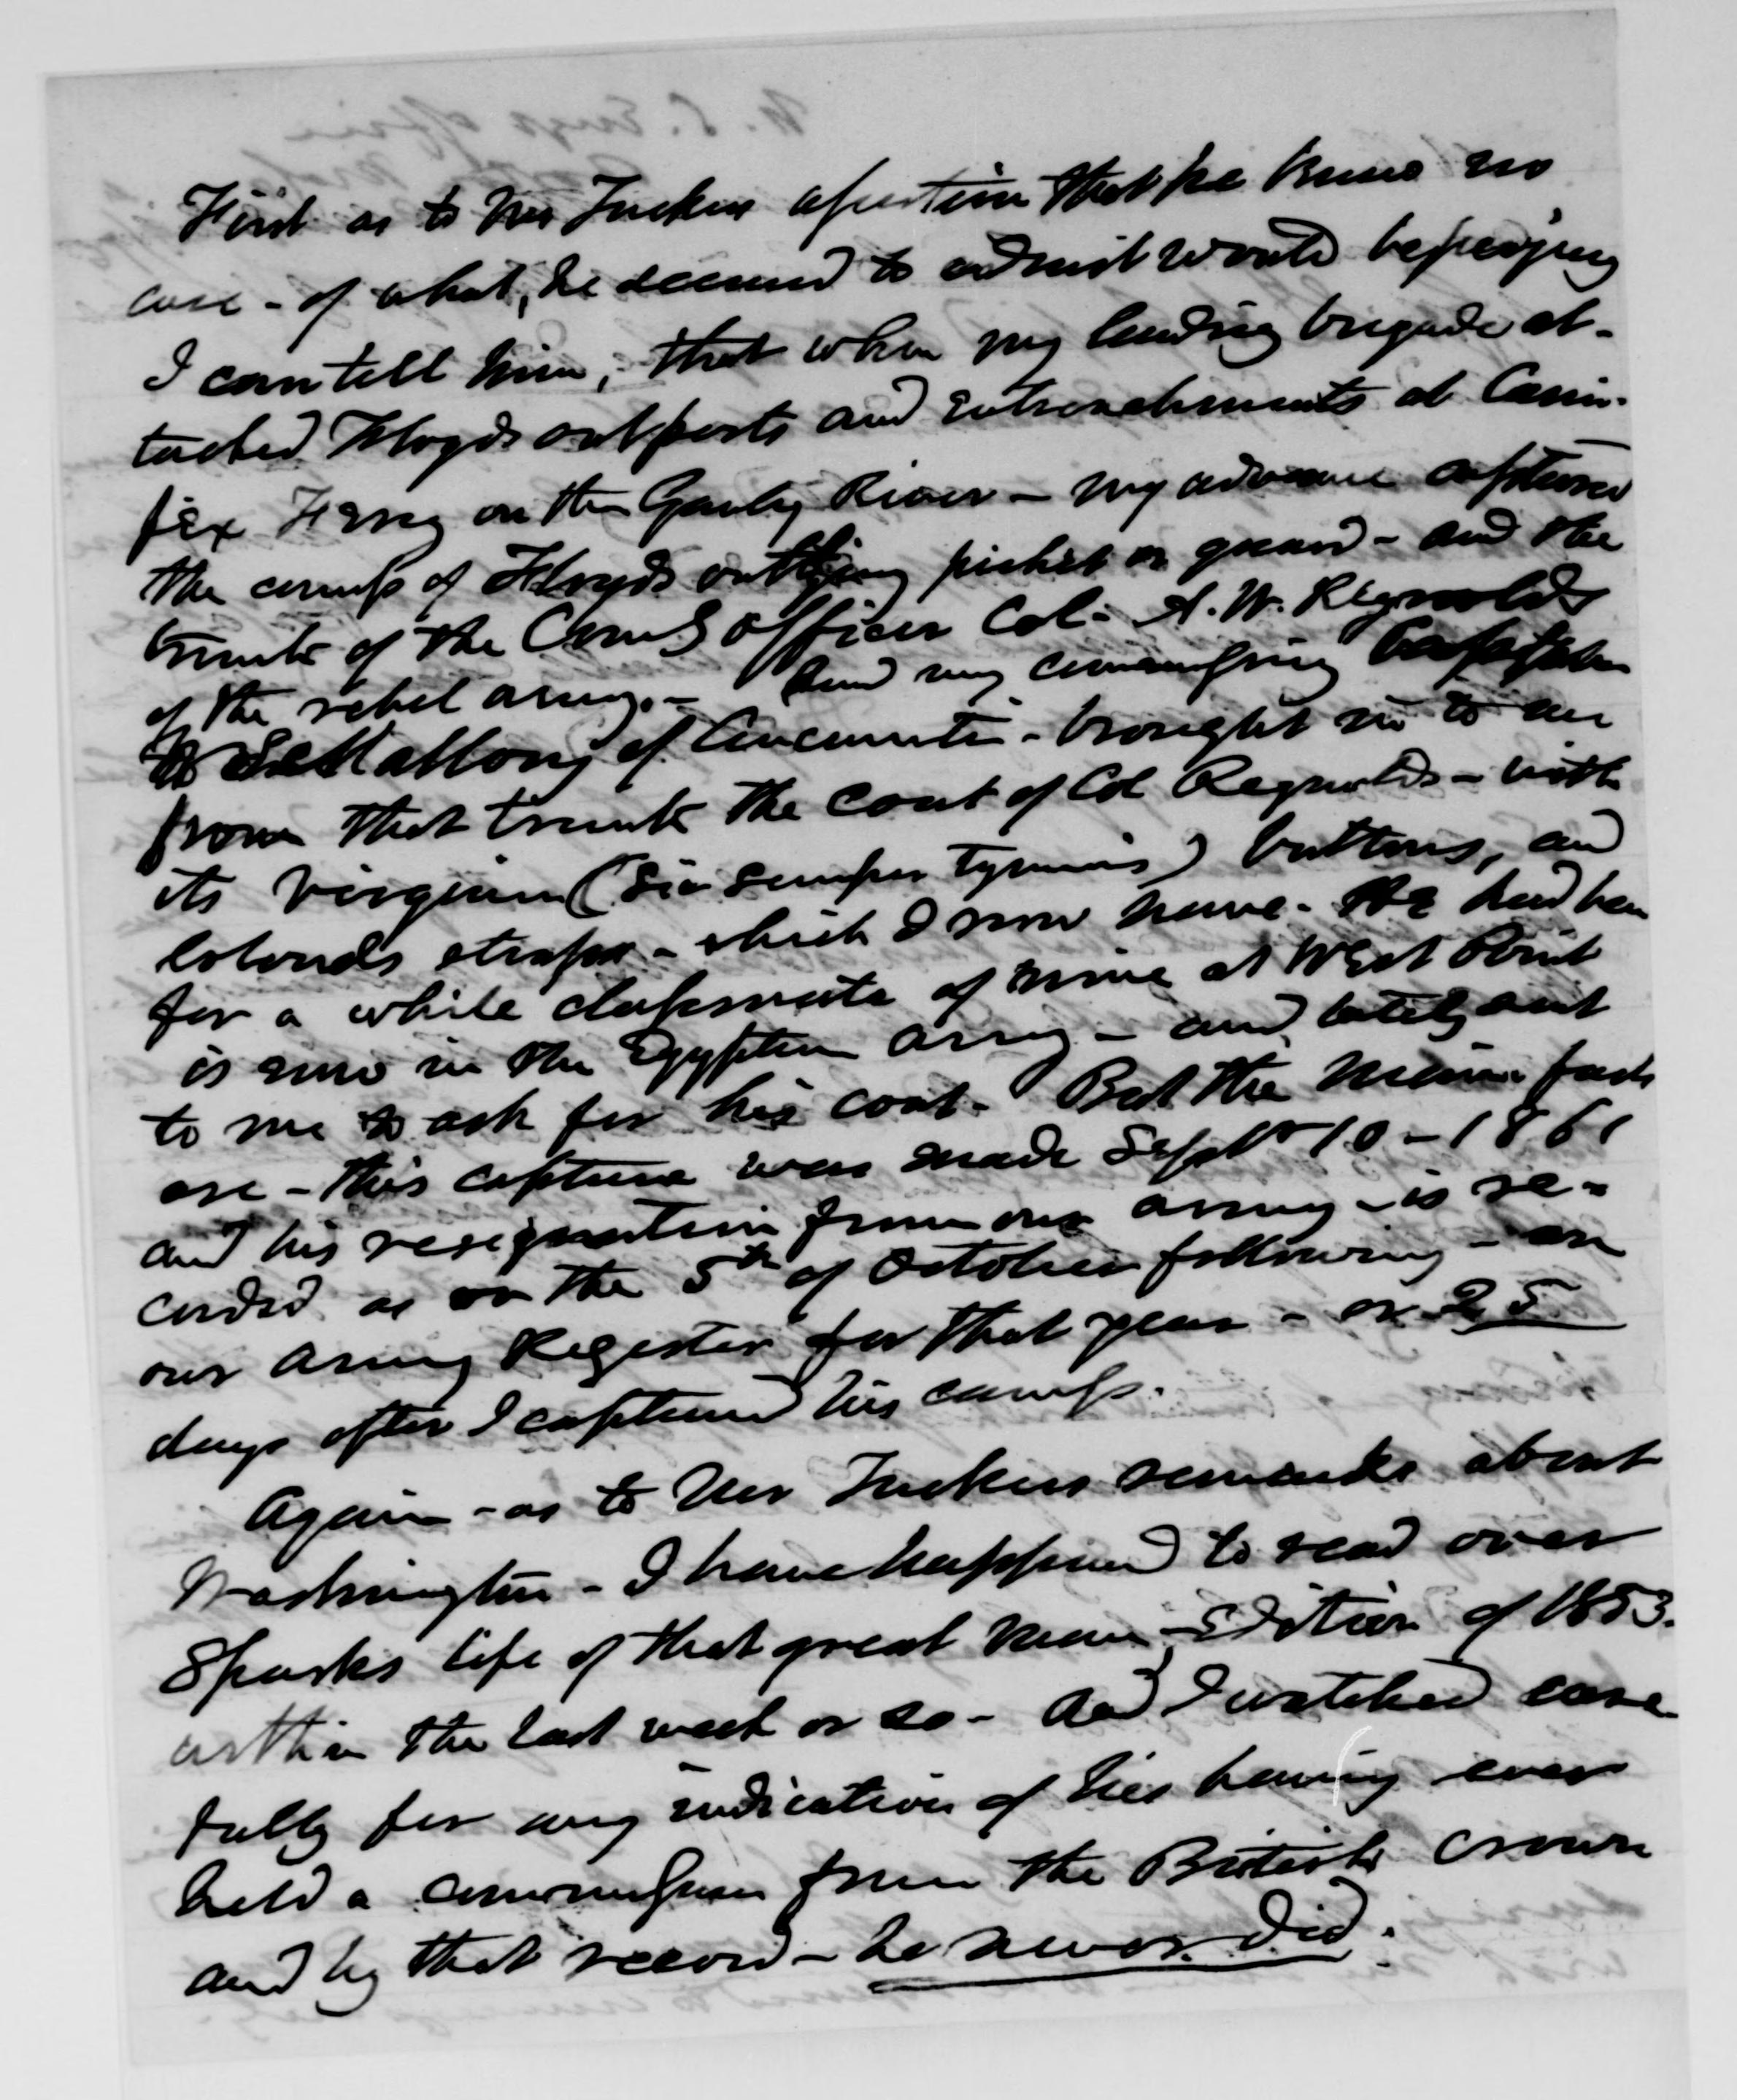 First as to Mr Tuckers assertion that he knew no
case - of what, he seemed to admit would be perjury
I can tell him, that when my leading brigade at-
tacked Floyds outposts and entrenchments at Carni-
fex Ferry on the Gauly River - my advance captured
the camp of Floyds outlying picket or guard - and the
trunk of the Comdg officer Col. A. W. Reynolds
of the rebel army. - And my
of Cincinnati - brought in to me
from that trunk the coat of Col Reynolds - with
its Virginia (Sic semper tyrannis) buttons, and
Colonels straps - which I now have. He had been
for a while classmate of mine at West Point
is now in the Egyptian army - and lately sent
to me to ask for his coat. But the main facts
are - this capture was made Septr 10 - 1861
and his resignation from our army - is re-
corded as on the 5th of October following - on
our Army Register for that year - or 25
days after I captured his camp.
Again - as to Mr Tuckers remarks about
Washington - I have happened to read over
Sparks life of that great man, Edition of 1853.
within the last week or so - and I watched care
fully for any indication of his having ever
held a commission from the British crown
and by that record - he never did.